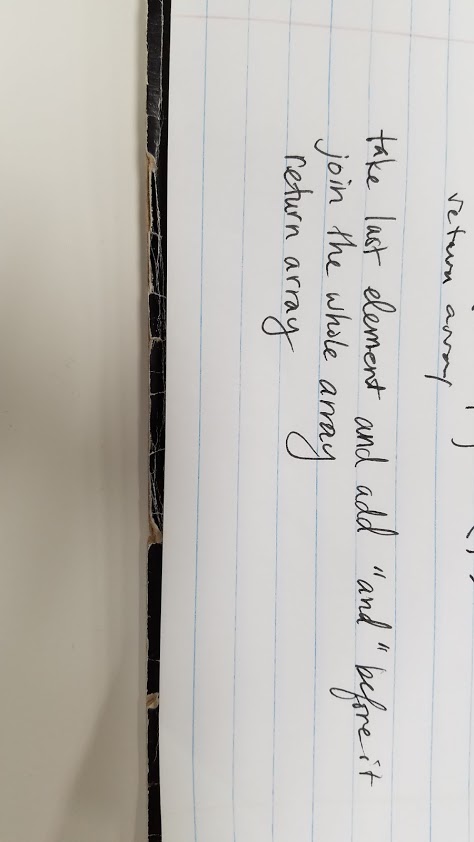 return array
take last element and add "and" before it
join the whole array
return array